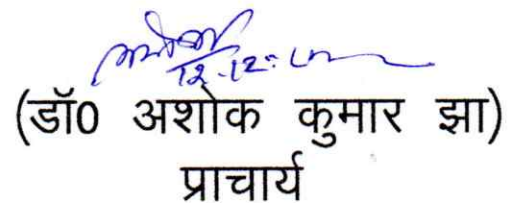 12.12.
(डॉ0 अशोक कुमार झा)
प्राचार्य